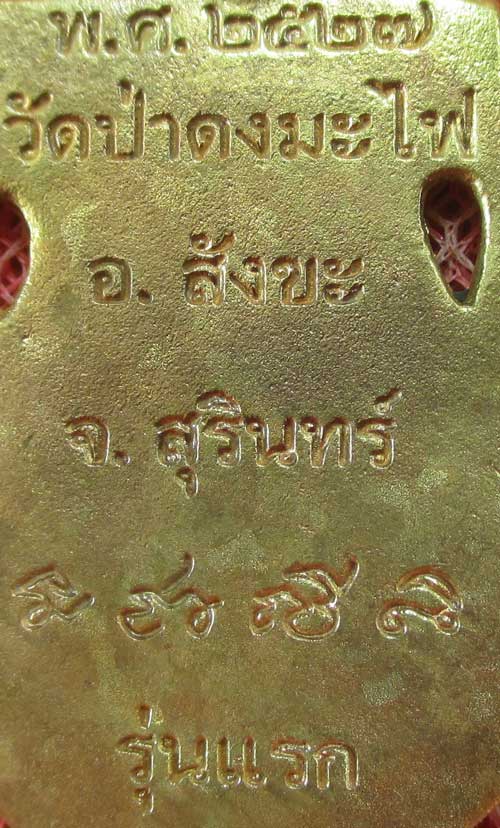 พ.ศ. ๒๕๒๗
วัดป่าดงมะไฟ
อ. สังขะ
จ. สุรินทร์
รุ่นแรก